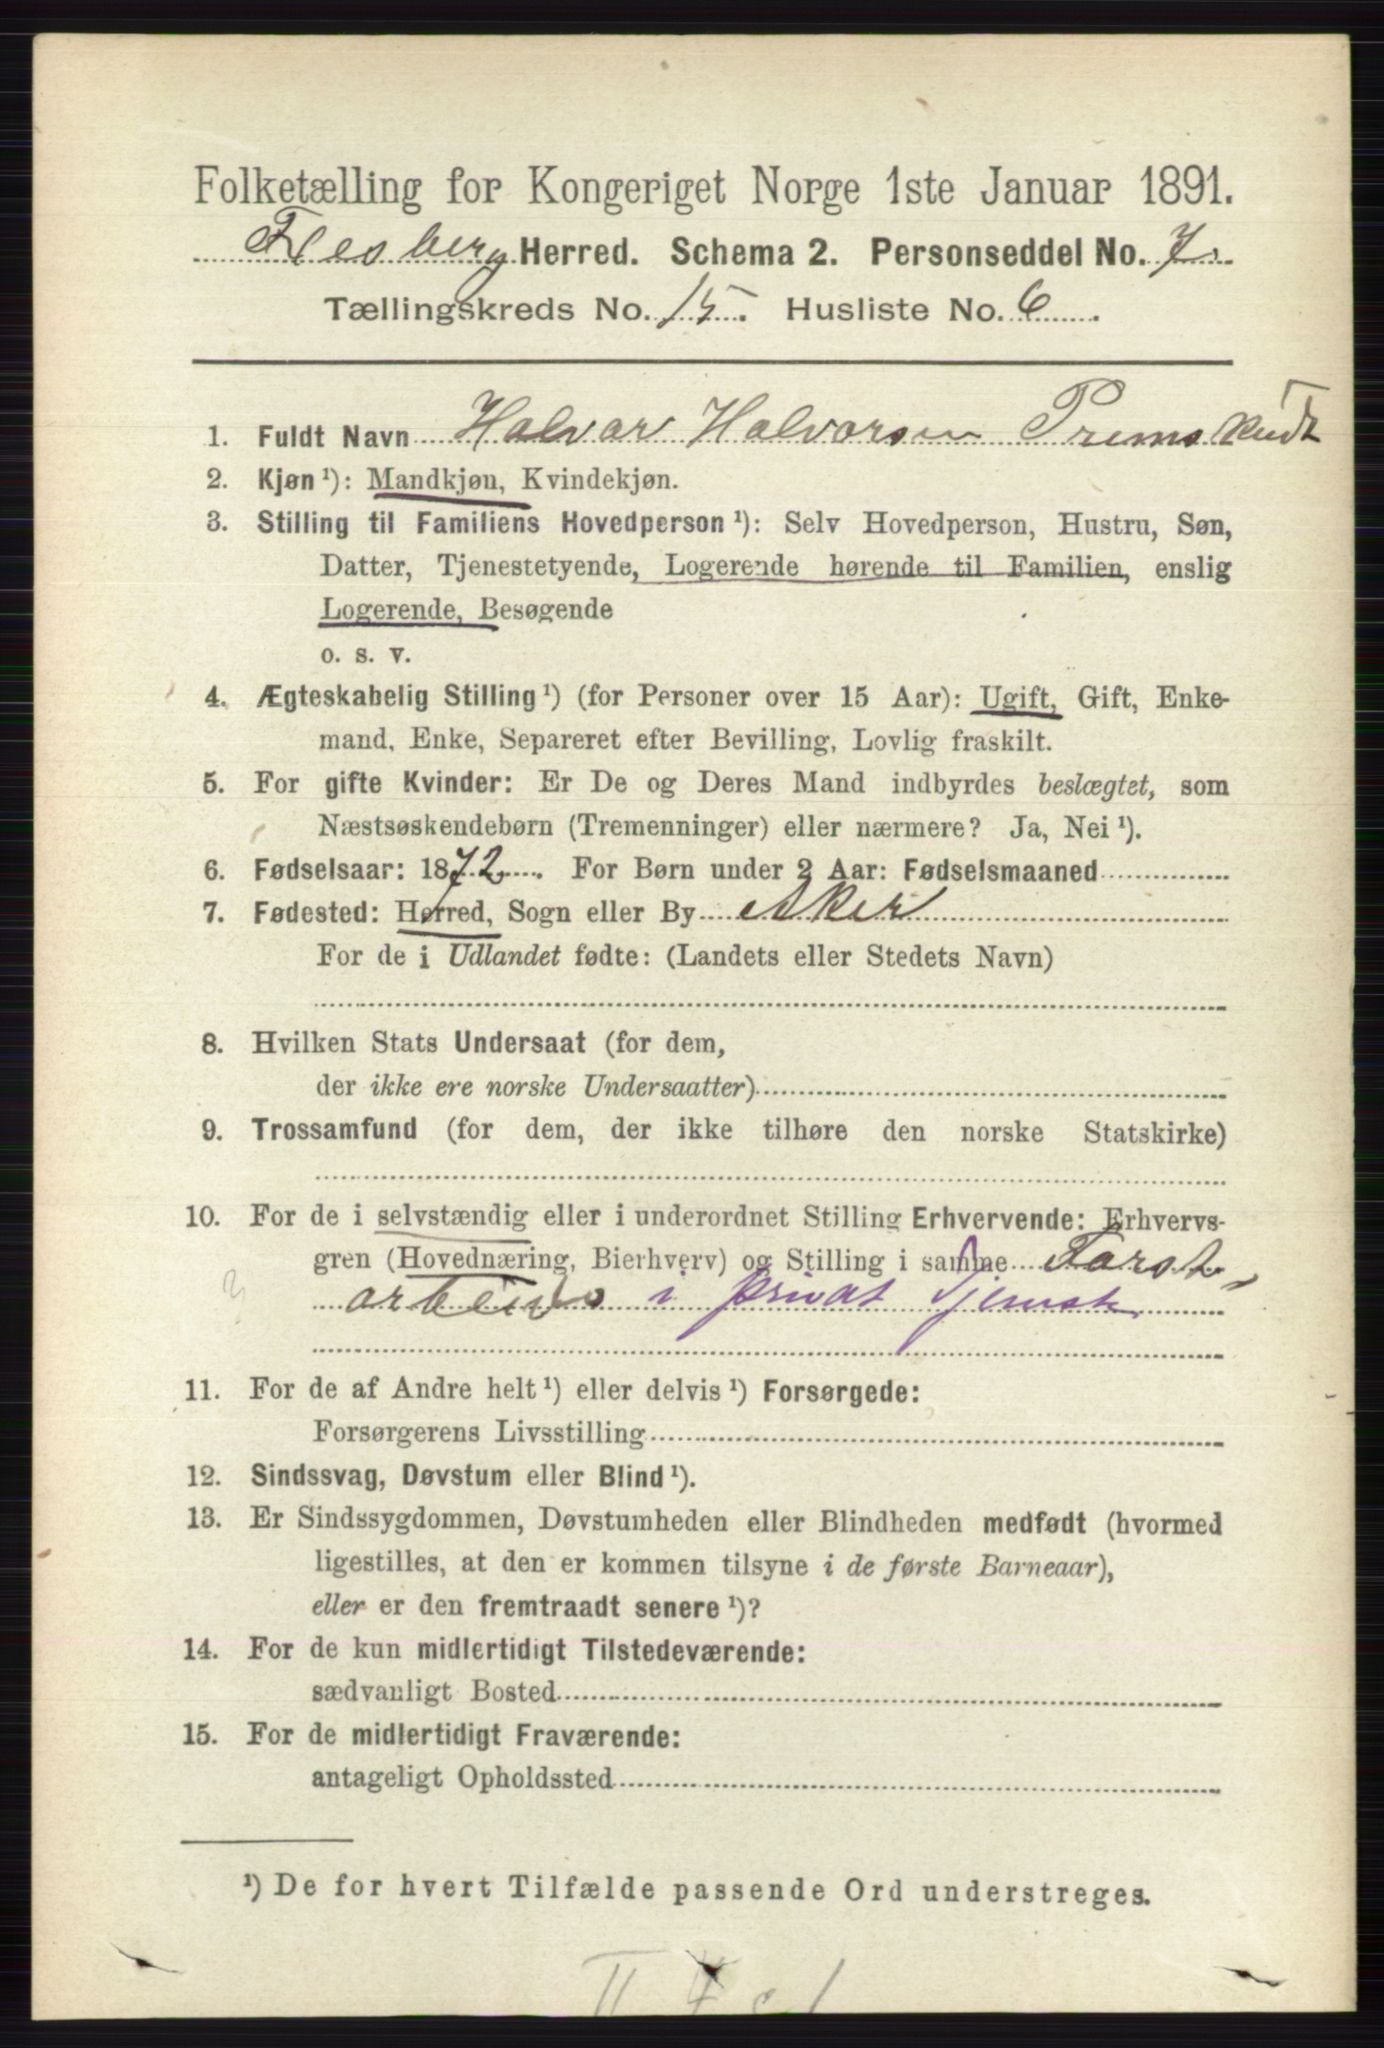 Folketælling for Kongeriget Norge 1ste Januar 1891.
Flesberg Herred. Schema 2. Personseddel No. 7.
Tællingskreds No. 15. Husliste No. 6.
1. Fuldt Navn Halvor Halvorsen
2. Kjøn ¹): Mandkjøn, Kvindekjøn.
3. Stilling til Familiens Hovedperson ¹): Selv Hovedperson, Hustru, Søn,
Datter, Tjenestetyende, Logerende hørende til Familien, enslig
Logerende, Besøgende
o. s. v.
4. Ægteskabelig Stilling ¹) (for Personer over 15 Aar): Ugift, Gift, Enke-
mand, Enke, Separeret efter Bevilling, Lovlig fraskilt.
5. For gifte Kvinder: Er De og Deres Mand indbyrdes beslægtet, som
Næstsøskendebørn (Tremenninger) eller nærmere? Ja, Nei ¹).
6. Fødselsaar: 1872. For Børn under 2 Aar: Fødselsmaaned
7. Fødested: Herred, Sogn eller By Aker
For de i Udlandet fødte: (Landets eller Stedets Navn)
8. Hvilken Stats Undersaat (for dem,
der ikke ere norske Undersaatter)
9. Trossamfund (for dem, der ikke tilhøre den norske Statskirke)
10. For de i selvstændig eller i underordnet Stilling Erhvervende: Erhvervs-
gren (Hovednæring, Bierhverv) og Stilling i samme Forst
arbeide i privat Tjeneste
11. For de af Andre helt ¹) eller delvis ¹) Forsørgede:
Forsørgerens Livsstilling
12. Sindssvag, Døvstum eller Blind ¹).
13. Er Sindssygdommen, Døvstumheden eller Blindheden medfødt (hvormed
ligestilles, at den er kommen tilsyne i de første Barneaar),
eller er den fremtraadt senere ¹)?
14. For de kun midlertidigt Tilstedeværende:
sædvanligt Bosted
15. For de midlertidigt Fraværende:
antageligt Opholdssted
¹) De for hvert Tilfælde passende Ord understreges.